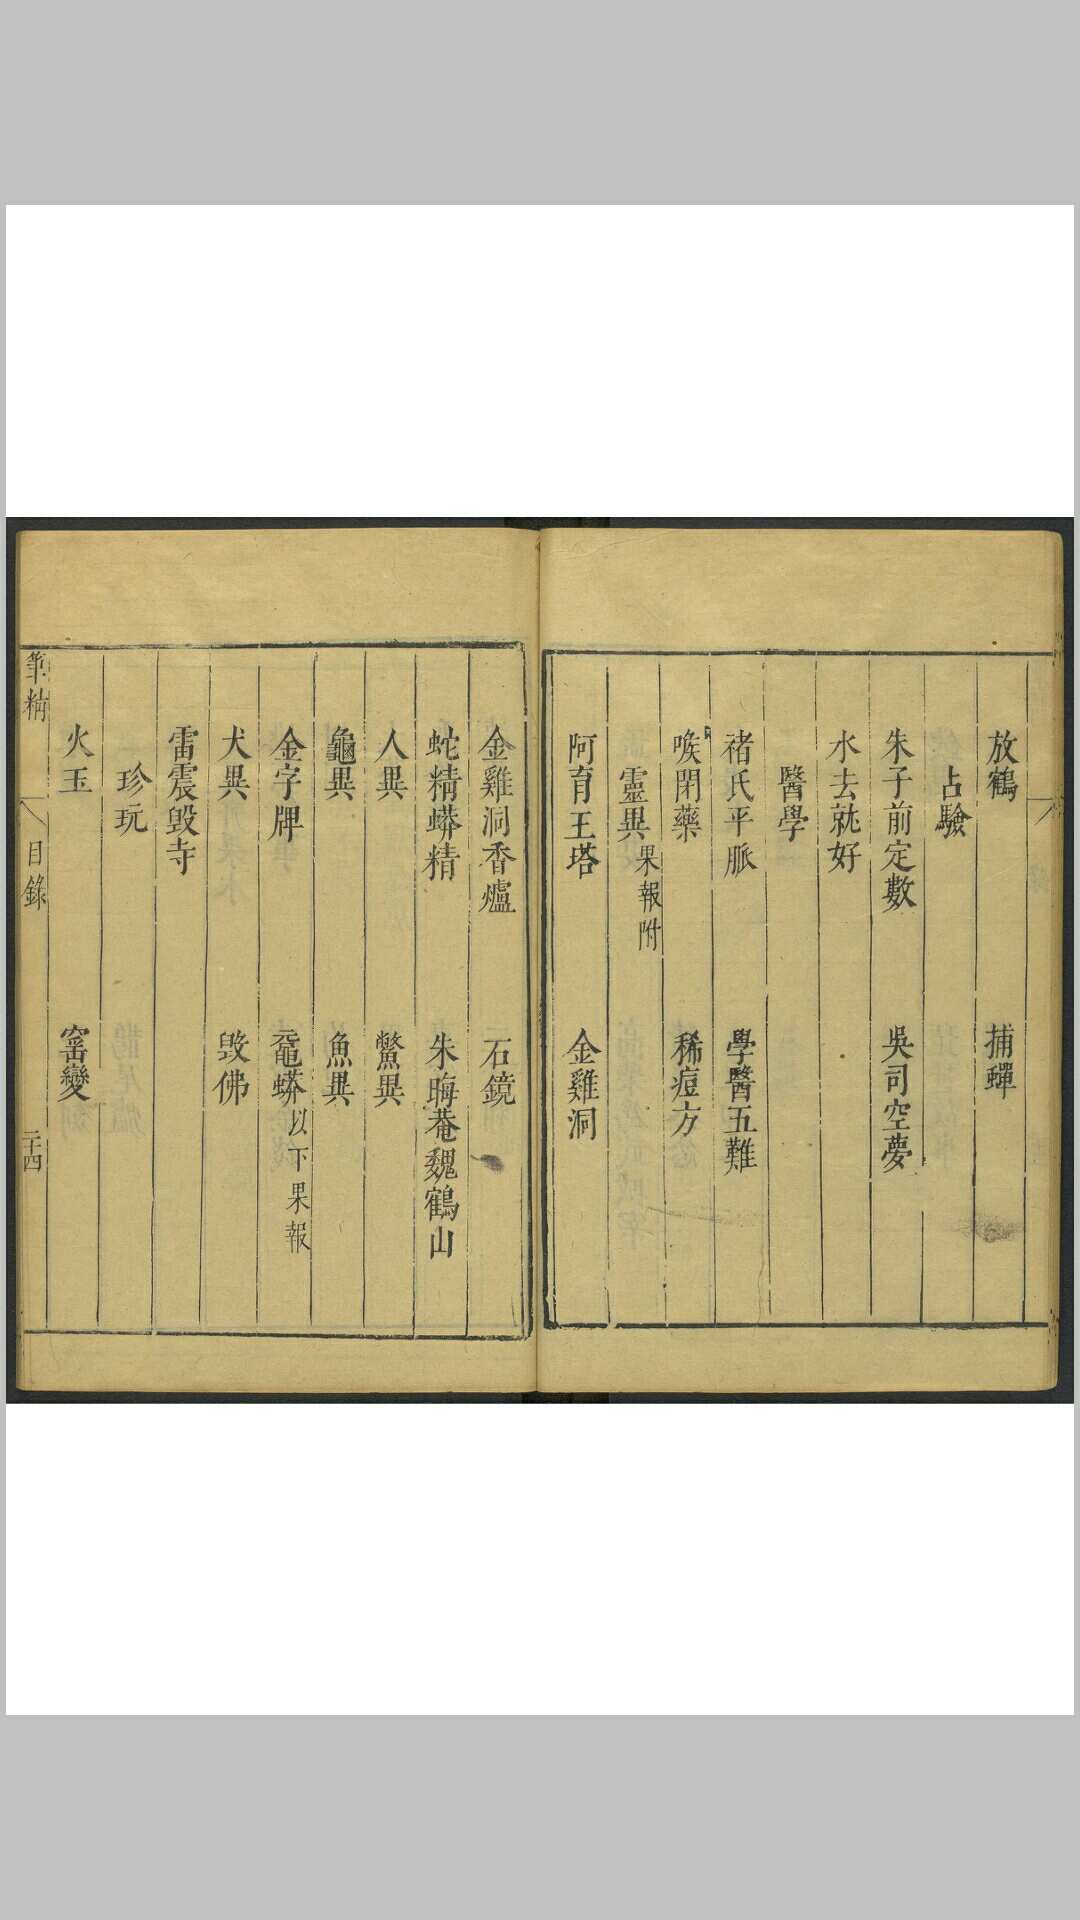 放鶴　捕蟬
占驗
朱子前定數　吳司空夢
水去就好
醫學
褚氏平脈　學醫五難
喉閉藥　稀痘方
靈異　果報附
阿育王塔　金雞洞
金雞洞香爐　石鏡
蛇精蟒精　朱晦菴魏鶴山
人異　鱉異
龜異　魚異
金字牌　黿蟒　以下果報
犬異　毀佛
雷震毀寺
珍玩
火玉　窰變
筆精　目錄　二十四